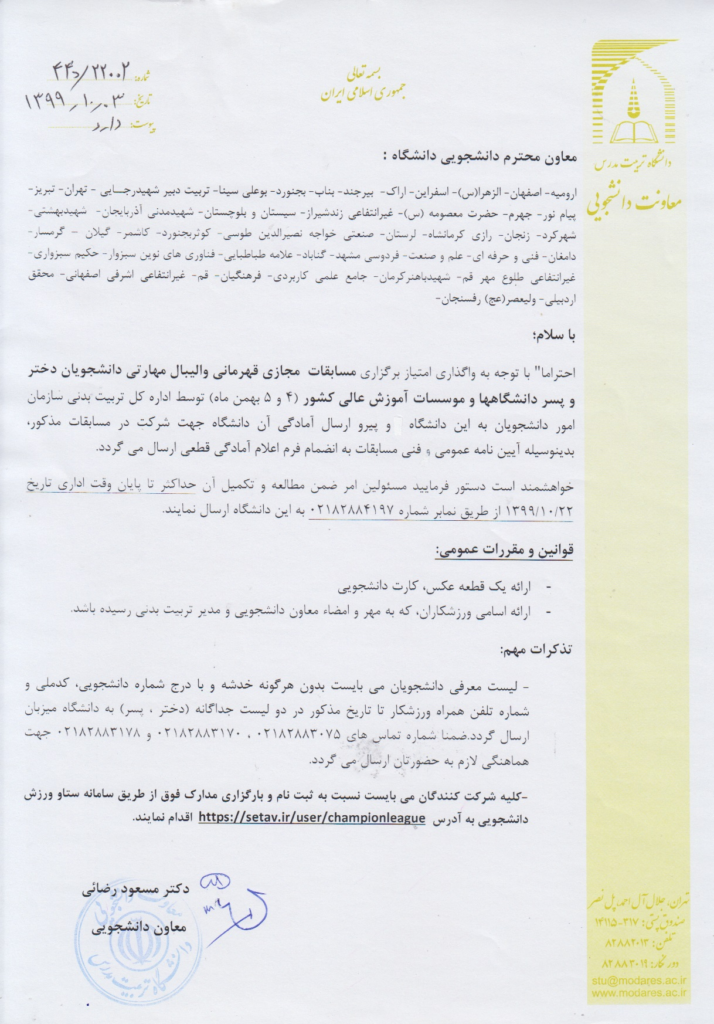 بسمه تعالی
جمهوری اسلامی ایران
شماره: ۴۴د/۲۲۰۰۲
تاریخ: ۱۳۹۹,۱۰,۰۳
پیوست: دارد
دانشگاه تربیت مدرس
معاونت دانشجویی
معاون محترم دانشجویی دانشگاه :
ارومیه- اصفهان- الزهرا(س)- اسفراین- اراک- بیرجند- بناب- بجنورد- بوعلی سینا- تربیت دبیر شهیدرجایی - تهران- تبریز-
پیام نور- جهرم- حضرت معصومه (س)- غیرانتفاعی زندشیراز- سیستان و بلوچستان- شهیدمدنی آذربایجان- شهیدبهشتی-
شهرکرد- زنجان- رازی کرمانشاه- لرستان- صنعتی خواجه نصیرالدین طوسی- کوثربجنورد- کاشمر- گیلان – گرمسار-
دامغان- فنی و حرفه ای- علم و صنعت- فردوسی مشهد- گناباد- علامه طباطبایی- فناوری های نوین سبزوار- حکیم سبزواری-
غیرانتفاعی طلوع مهر قم- شهیدباهنرکرمان- جامع علمی کاربردی- فرهنگیان- قم- غیرانتفاعی اشرفی اصفهانی- محقق
اردبیلی- ولیعصر(عج) رفسنجان-
با سلام؛
احتراما" با توجه به واگذاری امتیاز برگزاری مسابقات مجازی قهرمانی والیبال مهارتی دانشجویان دختر
و پسر دانشگاهها و موسسات آموزش عالی کشور (۴ و ۵ بهمن ماه) توسط اداره کل تربیت بدنی سازمان
امور دانشجویان به این دانشگاه و پیرو ارسال آمادگی آن دانشگاه جهت شرکت در مسابقات مذکور،
بدینوسیله آیین نامه عمومی و فنی مسابقات به انضمام فرم اعلام آمادگی قطعی ارسال می گردد.
خواهشمند است دستور فرمایید مسئولین امر ضمن مطالعه و تکمیل آن حداکثر تا پایان وقت اداری تاریخ
۱۳۹۹/۱۰/۲۲ از طریق نمابر شماره ۰۲۱۸۲۸۸۴۱۹۷ به این دانشگاه ارسال نمایند.
قوانین و مقررات عمومی:
- ارائه یک قطعه عکس، کارت دانشجویی
- ارائه اسامی ورزشکاران، که به مهر و امضاء معاون دانشجویی و مدیر تربیت بدنی رسیده باشد.
تذکرات مهم:
- لیست معرفی دانشجویان می بایست بدون هرگونه خدشه و با درج شماره دانشجویی، کدملی و
شماره تلفن همراه ورزشکار تا تاریخ مذکور در دو لیست جداگانه (دختر ، پسر) به دانشگاه میزبان
ارسال گردد.ضمنا شماره تماس های ۰۲۱۸۲۸۸۳۰۷۵ ، ۰۲۱۸۲۸۸۳۱۷۰ و ۰۲۱۸۲۸۸۳۱۷۸ جهت
هماهنگی لازم به حضورتان ارسال می گردد.
-کلیه شرکت کنندگان می بایست نسبت به ثبت نام و بارگزاری مدارک فوق از طریق سامانه ستاو ورزش
دانشجویی به آدرس https://setav.ir/user/championleague اقدام نمایند.
دکتر مسعود رضائی
معاون دانشجویی
معاونت دانشجویی
دانشگاه تربیت مدرس
تهران، جلال آل احمد، پل نصر
صندوق پستی: ۳۱۷-۱۴۱۱۵
تلفن: ۸۲۸۸۲۰۱۳
دورنگار: ۸۲۸۸۳۰۱۹
stu@modares.ac.ir
www.modares.ac.ir